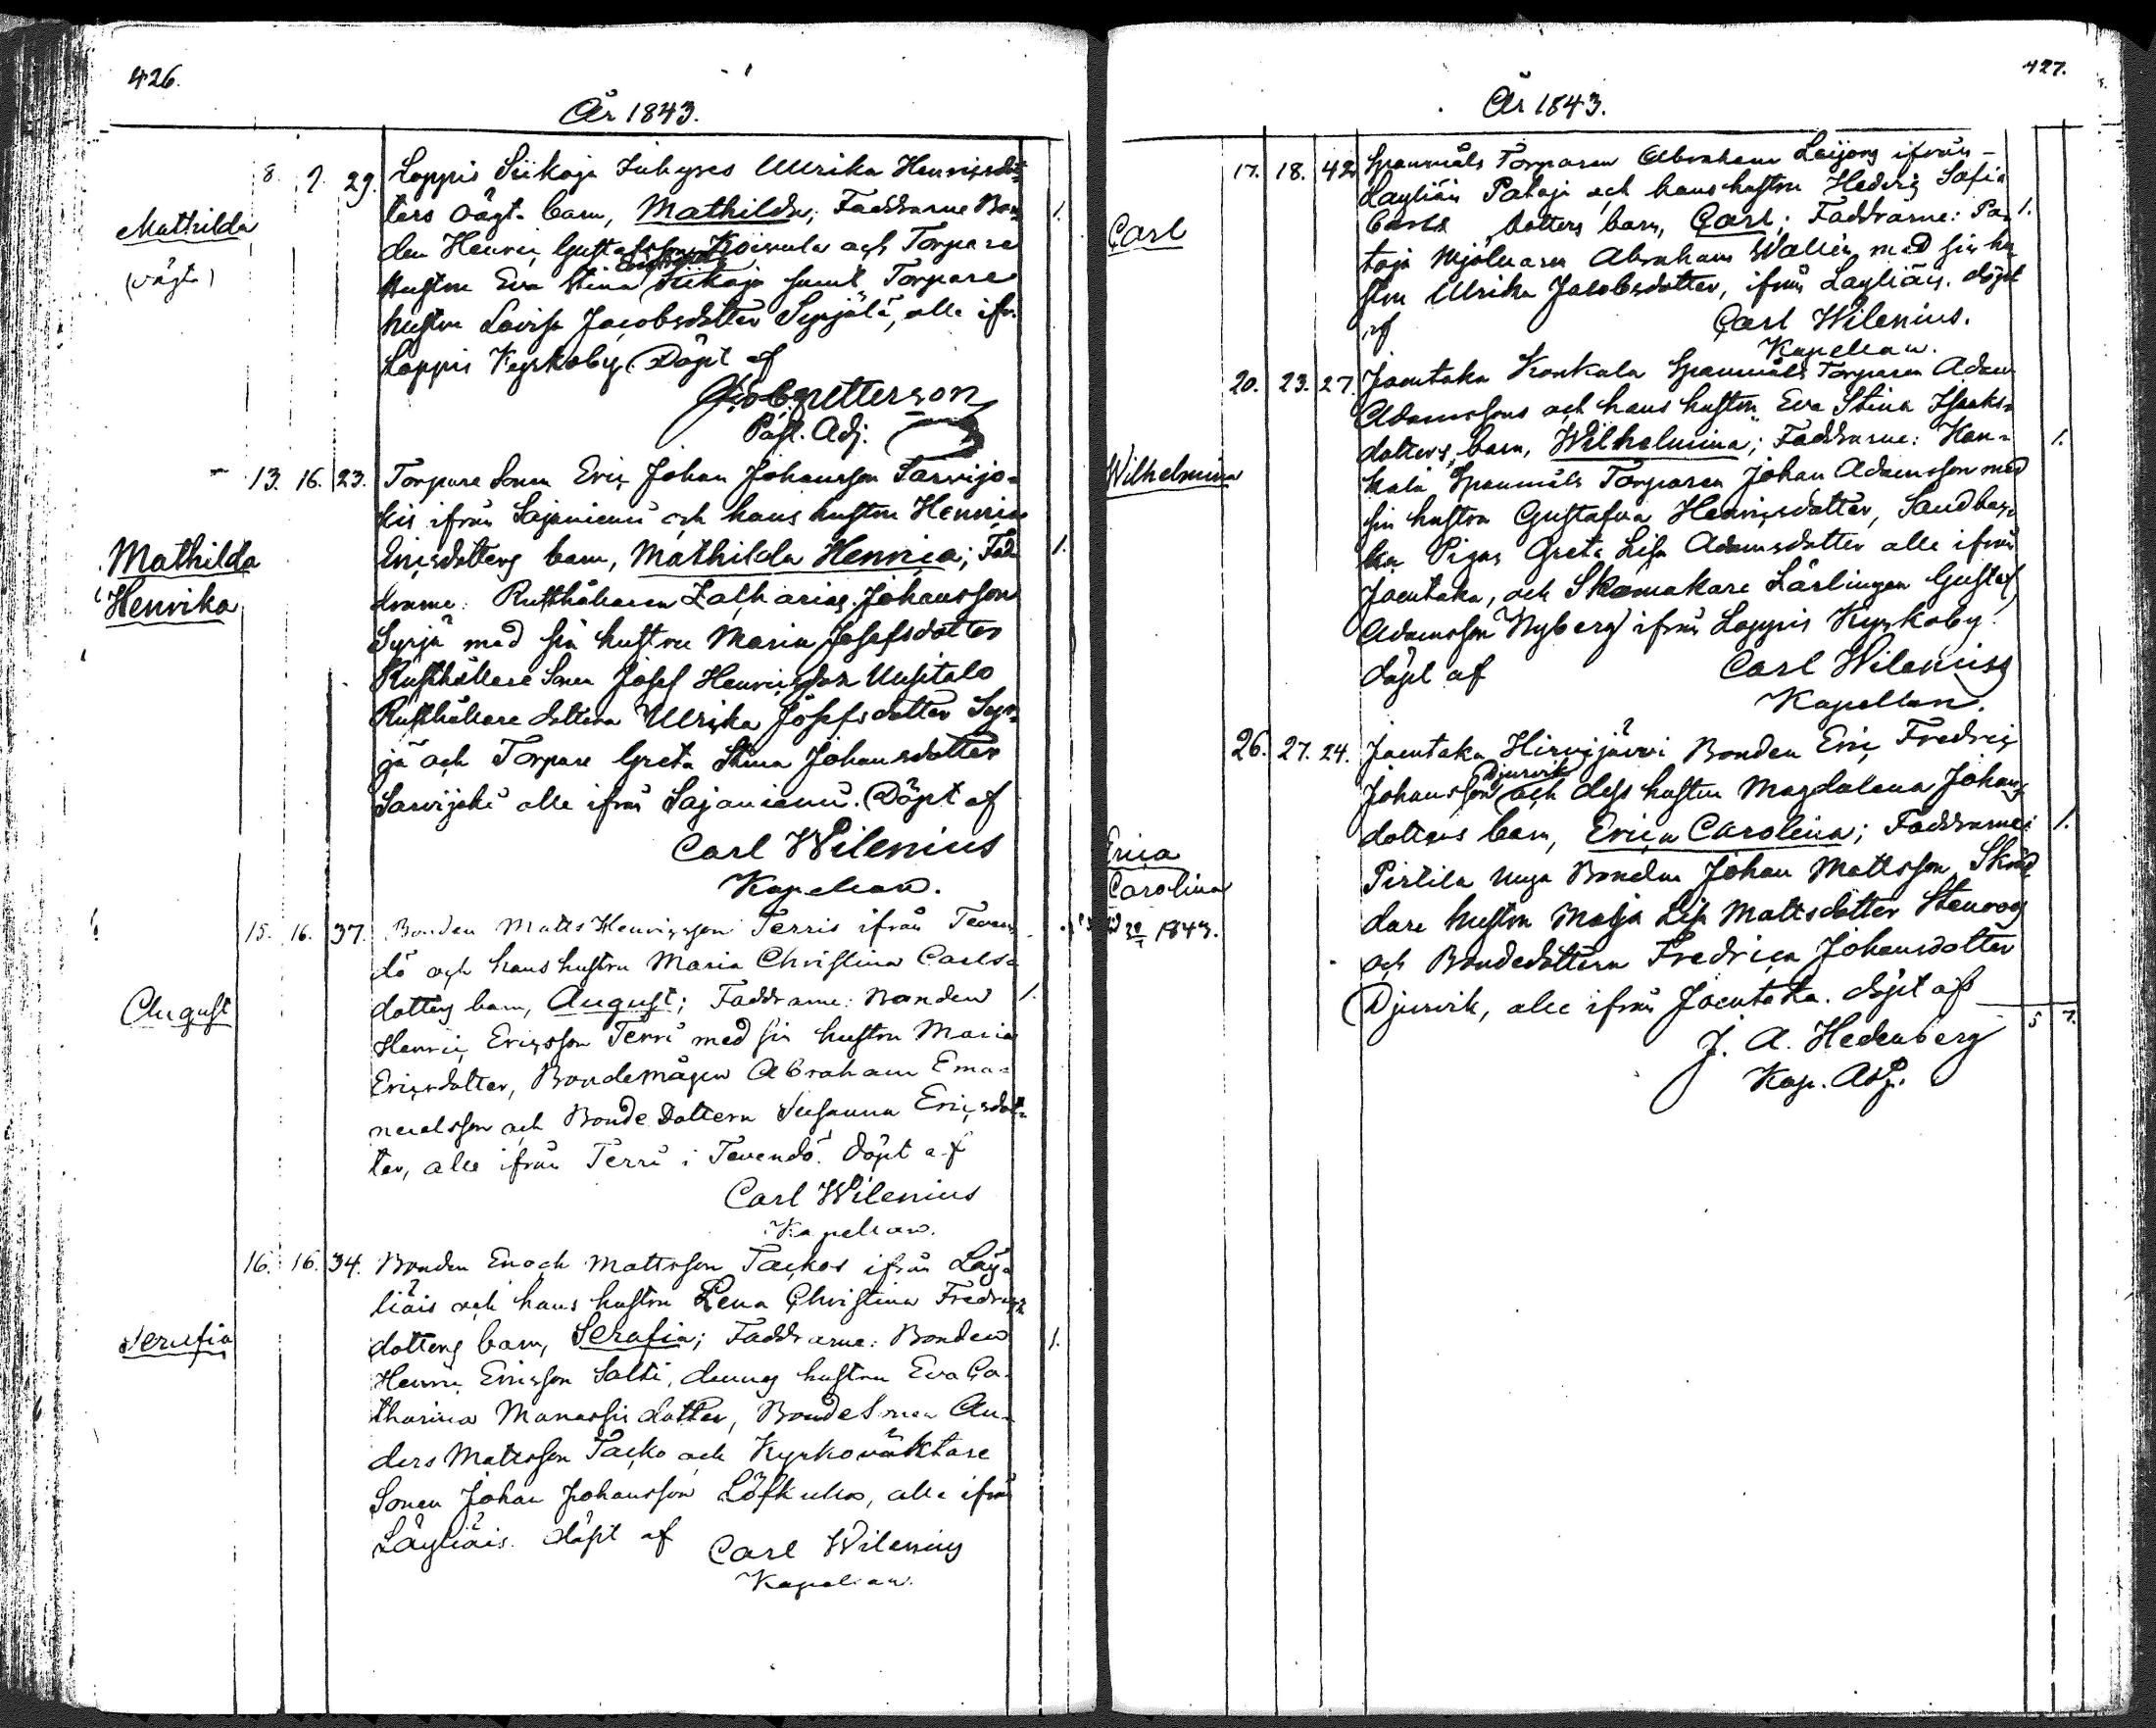 426.
År 1843.
8. 9. 29. Loppis Siikoja Inhyses Ulrika Henricsdot=
Mathilda
(oägta)
ters oägta barn, Mathilda; Faddrarne Bon= 1.
den Henric Gustafsson Koivula och Torpare
Hustrun Eva Stina Siikoja samt Torpare
hustrun Lovisa Jacobsdotter Syrjälä, alle ifr.
Loppis Kyrkoby. Döpt af
Petterson
Past. Adj.
13. 16. 23. Torpare Sonen Eric Johan Johansson Sarvijo=
kis ifrån Sajaniemi och hans hustru Henrica
Mathilda
Henrika
Ericsdotters barn, Mathilda Henrica; Fad= 1.
drarne: Rusthållaren Zacharias Johansson
Syrjä med sin hustru Maria Josefsdotter
Rusthållare Sonen Josef Henricsson Uusitalo
Rusthållare dottern Ulrika Josefsdotter Syr=
jä och Torpare Greta Stina Johansdotter
Sarvijoki alle ifrån Sajaniemi. Döpt af
Carl Wilenius
Kapellan.
15. 16. 37. Bonden Matts Henricsson Terris ifrån Teven=
tö och hans hustru Maria Christina Carls=
August
dotters barn, August; Faddrarne: Bonden 1.
Henric Ericsson Terri med sin hustru Maria
Ericsdotter, Bondemågen Abraham Ema=
nuelsson och Bonde Dottern Susanna Ericsdot=
ter, alle ifrån Terri i Tevendö. Döpt af
Carl Wilenius
Kapellan.
16. 16. 34. Bonden Enoch Mattsson Tackos ifrån Läy=
liäis och hans hustru Lena Christina Fredrics
Serafia
dotters barn, Serafia; Faddrarne: Bonden 1.
Henric Ericsson Salti, dennes hustru Eva Ca=
tharina Manassisdotter, BondeSonen An=
ders Mattsson Tacko och Kyrkoväktare
Sonen Johan Johansson Löfkulla, alle ifrån
Läyliäis. döpt af Carl Wilenius
Kapellan.
427.
År 1843.
17. 18. 42. Spanmåls Torparen Abraham Leijons ifrån
Layliäis Pataja och hans hustru Hedvig Sofia
Carl
Carls dotters barn, Carl; Faddrarne: Pa= 1.
taja Mjölnaren Abraham Wallin med sin hu=
stru Ulrika Jacobsdotter, ifrån Layliäis. döpt
af Carl Wilenius.
Kapellan.
20. 23. 27. Joentaka Konkala Spanmåls Torparen Adam
Adamssons och hans hustru Eva Stina Isaks=
Wilhelmina
dotters barn, Wilhelmina; Faddrarne: Kon= 1.
kala Spanmåls Torparen Johan Adamsson med
sin hustru Gustafva Henricsdotter, Sandbac=
ka Pigan Greta Lisa Adamsdotter alle ifrån
Joentaka, och Skomakare Lärlingen Gustaf
Adamsson Nyberg ifrån Loppis Kyrkoby.
döpt af Carl Wilenius
Kapellan.
26. 27. 24. Joentaka Hirvijärvi Bonden Eric Fredric
Djurvik
Johansson och dess hustru Magdalena Johans
Erica
Carolina
dotters barn, Erica Carolina; Faddrarne: 1.
Pirtilä unga Bonden Johan Mattsson, Skräd
1843.
dare hustrun Maja Lisa Mattsdotter Stenroos
och Bondedottern Fredrica Johansdotter
Djurvik, alle ifrån Joentaka. döpt af
5 7.
J. A. Hedenberg
Kap. Adj.